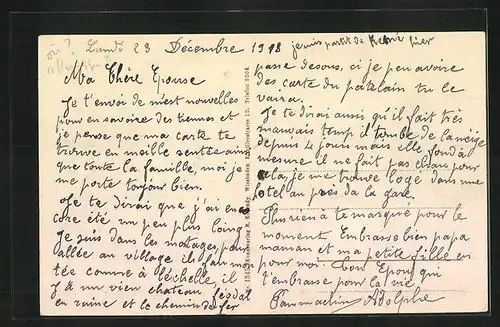 où?
Landö 23 Décembre 1918 je suis partit de hier
Ma Chère Epouse
Je t'envoi de mest nouvelles
pour en savoire du tiennes et
je pense que ma carte te
trouve en meille sentée ainsi
que toute la famille, moi je
me porte toujour bien.
Je te dirai que j'ai en
core été un peu plus loing
Je suis dans les montages, pour
allée au village ils faut mon
tée comme à léchelle, il
y a un vieu chateau féodal
en ruine et le chemin de fer
passe desous, ci je peu avoire
des carte du patelain tu le
vaira.
Je te dirai aussi qu'il fait très
mauvais temp il tombe de la neige
depuis 4 jours mais elle fond à
mesure il ne fait pas chaud pour
cela, je me trouve logé dans une
hotel au près da la gare.
Plus rien à te marqué pour le
moment Embrasse bien papa
maman et ma petite fille en
pour moi. Ton Epou qui
t'embrasse pour la vie
Adolphe
Wiesbaden